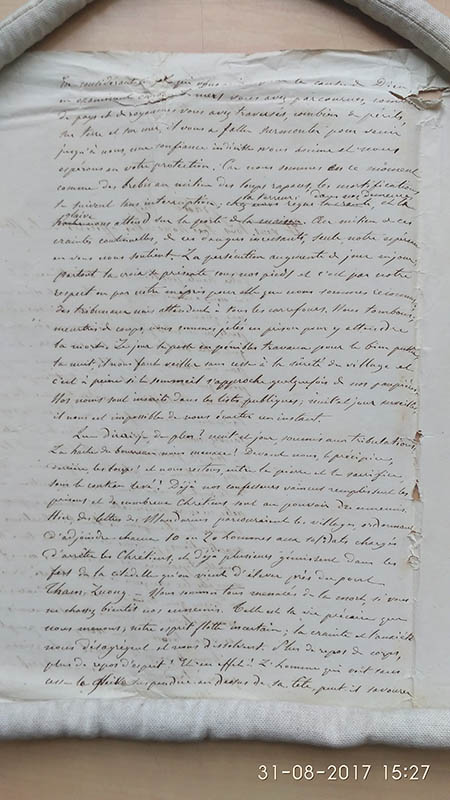 En considérant le zèle qui vous
en examinant mers vous avez parcourues, combien
de pays et de royaumes vous avez traversés, combien de périls,
sur terre et sur mer, il vous a fallu surmonter pour venir
jusqu'à nous, une confiance indicible nous anime et nous
espérons en votre protection. Car nous sommes en ce moment
comme des brebis au milieu des loups rapaces, les mortifications
se suivent sans interruption; la terreur dans nos demeures
chez nous règne la crainte, et la
glaive
nous attend sur la porte de la maison. Au milieu de ces
craintes continuelles, de ces dangers incessants, seule notre espérance
en vous nous soutient. La persécution augmente de jour en jour
partout la croix se présente sous nos pieds et c'est par notre
respect ou par notre mépris pour elle que nous sommes reconnus,
des tribunaux nous attendent à tous les carrefours. Nous tombons,
meurtris de coups, nous sommes jetés en prison pour y attendre
la mort. Le jour se passe en pénibles travaux pour le bien public
la nuit, il nous faut veiller sans cesse à la sûreté du village et
c'est à peine si le sommeil s'approche quelquefois de nos paupières
Nos noms sont inscrits dans les listes publiques; nuit et jour surveillés
il nous est impossible de nous écarter un instant.
de plus! nuit et jour, soumis aux tribulations,
La hache du bourreau nous menace! Devant nous, le précipice,
derrière, les loups! et nous restons, entre la pierre et le sacrifice,
sous le couteau levé! Déjà nos confesseurs vaincus remplissent les
prisons et de nombreux Chrétiens sont au pouvoir des ennemis
Hier, des lettres de Mandarins parcouraient les villages, ordonnant
d'adjoindre chacun 10 ou 20 hommes aux soldats chargés
d'arrêter les Chrétiens et déjà plusieurs gémissent dans les
fers de la citadelle qu'on vient d'élever près du pont
Nous sommes tous menacés de la mort, si vous
ne chassez bientôt nos ennemis. Telle est la vie précaire que
nous menons; notre esprit flotte incertain; la crainte et l'anxiété
nous désagrègent et nous dissolvent. Plus de repos de corps,
plus de repos d'esprit! Et en effet! L'homme qui voit sans
cesse le glaive suspendu au dessus de sa tête peut il savourer
31-08-2017 15:27